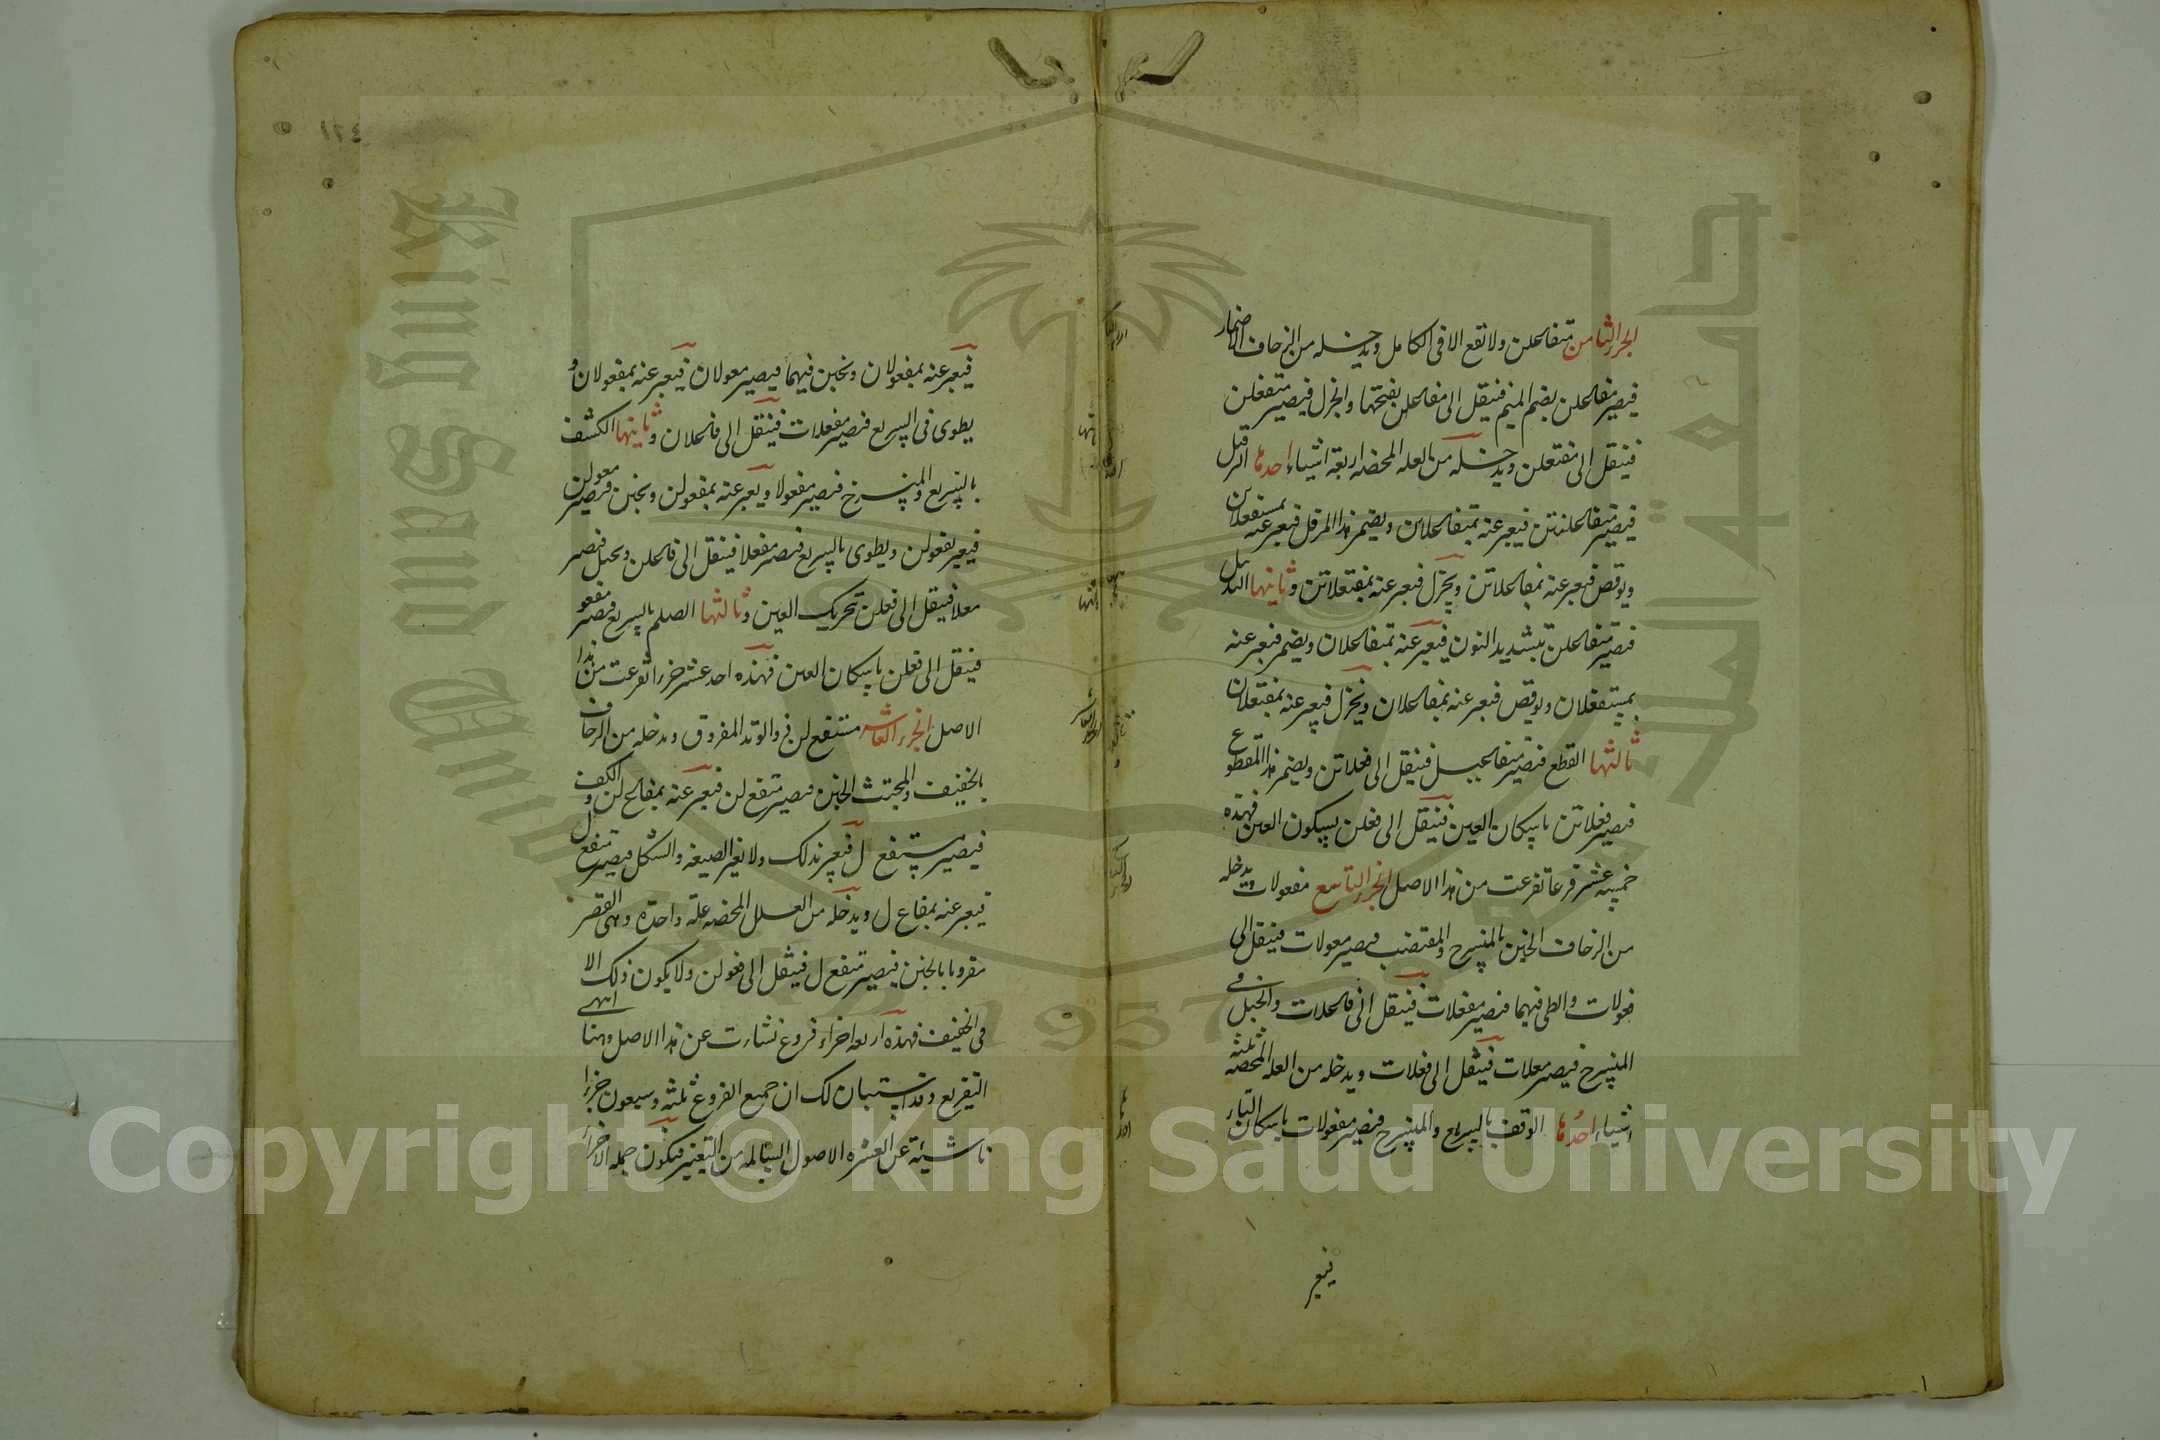 الجزء الثامن متفاعلن ولا تقع الا فى الكامل ويدخله من الزحاف الاضمار
فيصير متفاعلن بضم الميم فينقل الى مفاعلن بفتحها والخزل فيصير متفعلن
فينقل الى مفتعلن ويدخله من العله المحضه اربعة اشياء احدها الترفيل
فيصير متفاعلنتن فيعبر عنه بمتفاعلاتن ويضمر هذا المرفل فيعبر عنه بمستفعلاتن
ويوقص فيعبر عنه بمفاعلاتن ويخزل فيعبر عنه بمفتعلاتن وثانيها التذييل
فيصير متفاعلنن بتشديد النون فيعبر عنه بمتفاعلان ويضمر فيعبر عنه
بمستفعلان ويوقص فيعبر عنه بمفاعلان ويخزل فيعبر عنه بمفتعلان
ثالثها القطع فيصير متفاعل فينقل الى فعلاتن ويضمر هذا المقطوع
فيصير فعلاتن باسكان العين فينقل الى فعلن بسكون العين فهذه
خمسة عشر فرعا تفرعت من هذا الاصل الجزء التاسع مفعولات ويدخله
من الزحاف الخبن بالمنسرح والمقتضب فيصير معولات فينقل الى
فعولات والطى فيهما فيصير مفعلات فينقل الى فاعلات والخبل فى
المنسرح فيصير معلات فينقل الى فعلات ويدخله من العله المحضه ثلثة
اشياء احدها الوقف بالسريع والمنسرح فيصير مفعولات باسكان التاء
فيعبر
١٢٤
فيعبر عنه بمفعولان وتخبن فيهما فيصير معولان فيعبر عنه بمفعولان و
يطوى فى السريع فيصير مفعلات فينقل الى فاعلان وثانيها الكشف
بالسريع والمنسرح فيصير مفعولا ويعبر عنه بمفعولن ويخبن فيصير معولن
فيعبر بفعولن ويطوى بالسريع فيصير مفعلا فينقل الى فاعلن ويخبل فيصير
معلا فينقل الى فعلن بتحريك العين وثالثها الصلم بالسريع فيصير مفعو
فينقل الى فعلن باسكان العين فهذه احد عشر جزءا تفرعت من هذا
الاصل الجزء العاشر مستفع لن ذو الوتد المفروق ويدخله من الزحاف
بالخفيف والمجتث الخبن فيصير متفع لن فيعبر عنه بمفاع لن والكف
فيصير مستفع ل فيعبر بذلك ولا تغير الصيغه والشكل فيصير متفع ل
فيعبر عنه بمفاع ل ويدخله من العلل المحضه علة واحدة وهى القصر
مقرونا بالخبن فيصير متفع ل فينقل الى فعولن ولا يكون ذلك الا
فى الخفيف فهذه اربعه اجزاء فروع نشات عن هذا الاصل وهنا انتهى
التفريع وقد استبان لك ان جميع الفروع ثلثه وسبعون جزءا
ناشئية عن العشره الاصول السالمه من التغيير فيكون جمله الاجزاء
King Saud University
جامعة الملك سعود
1957
Copyright © King Saud University